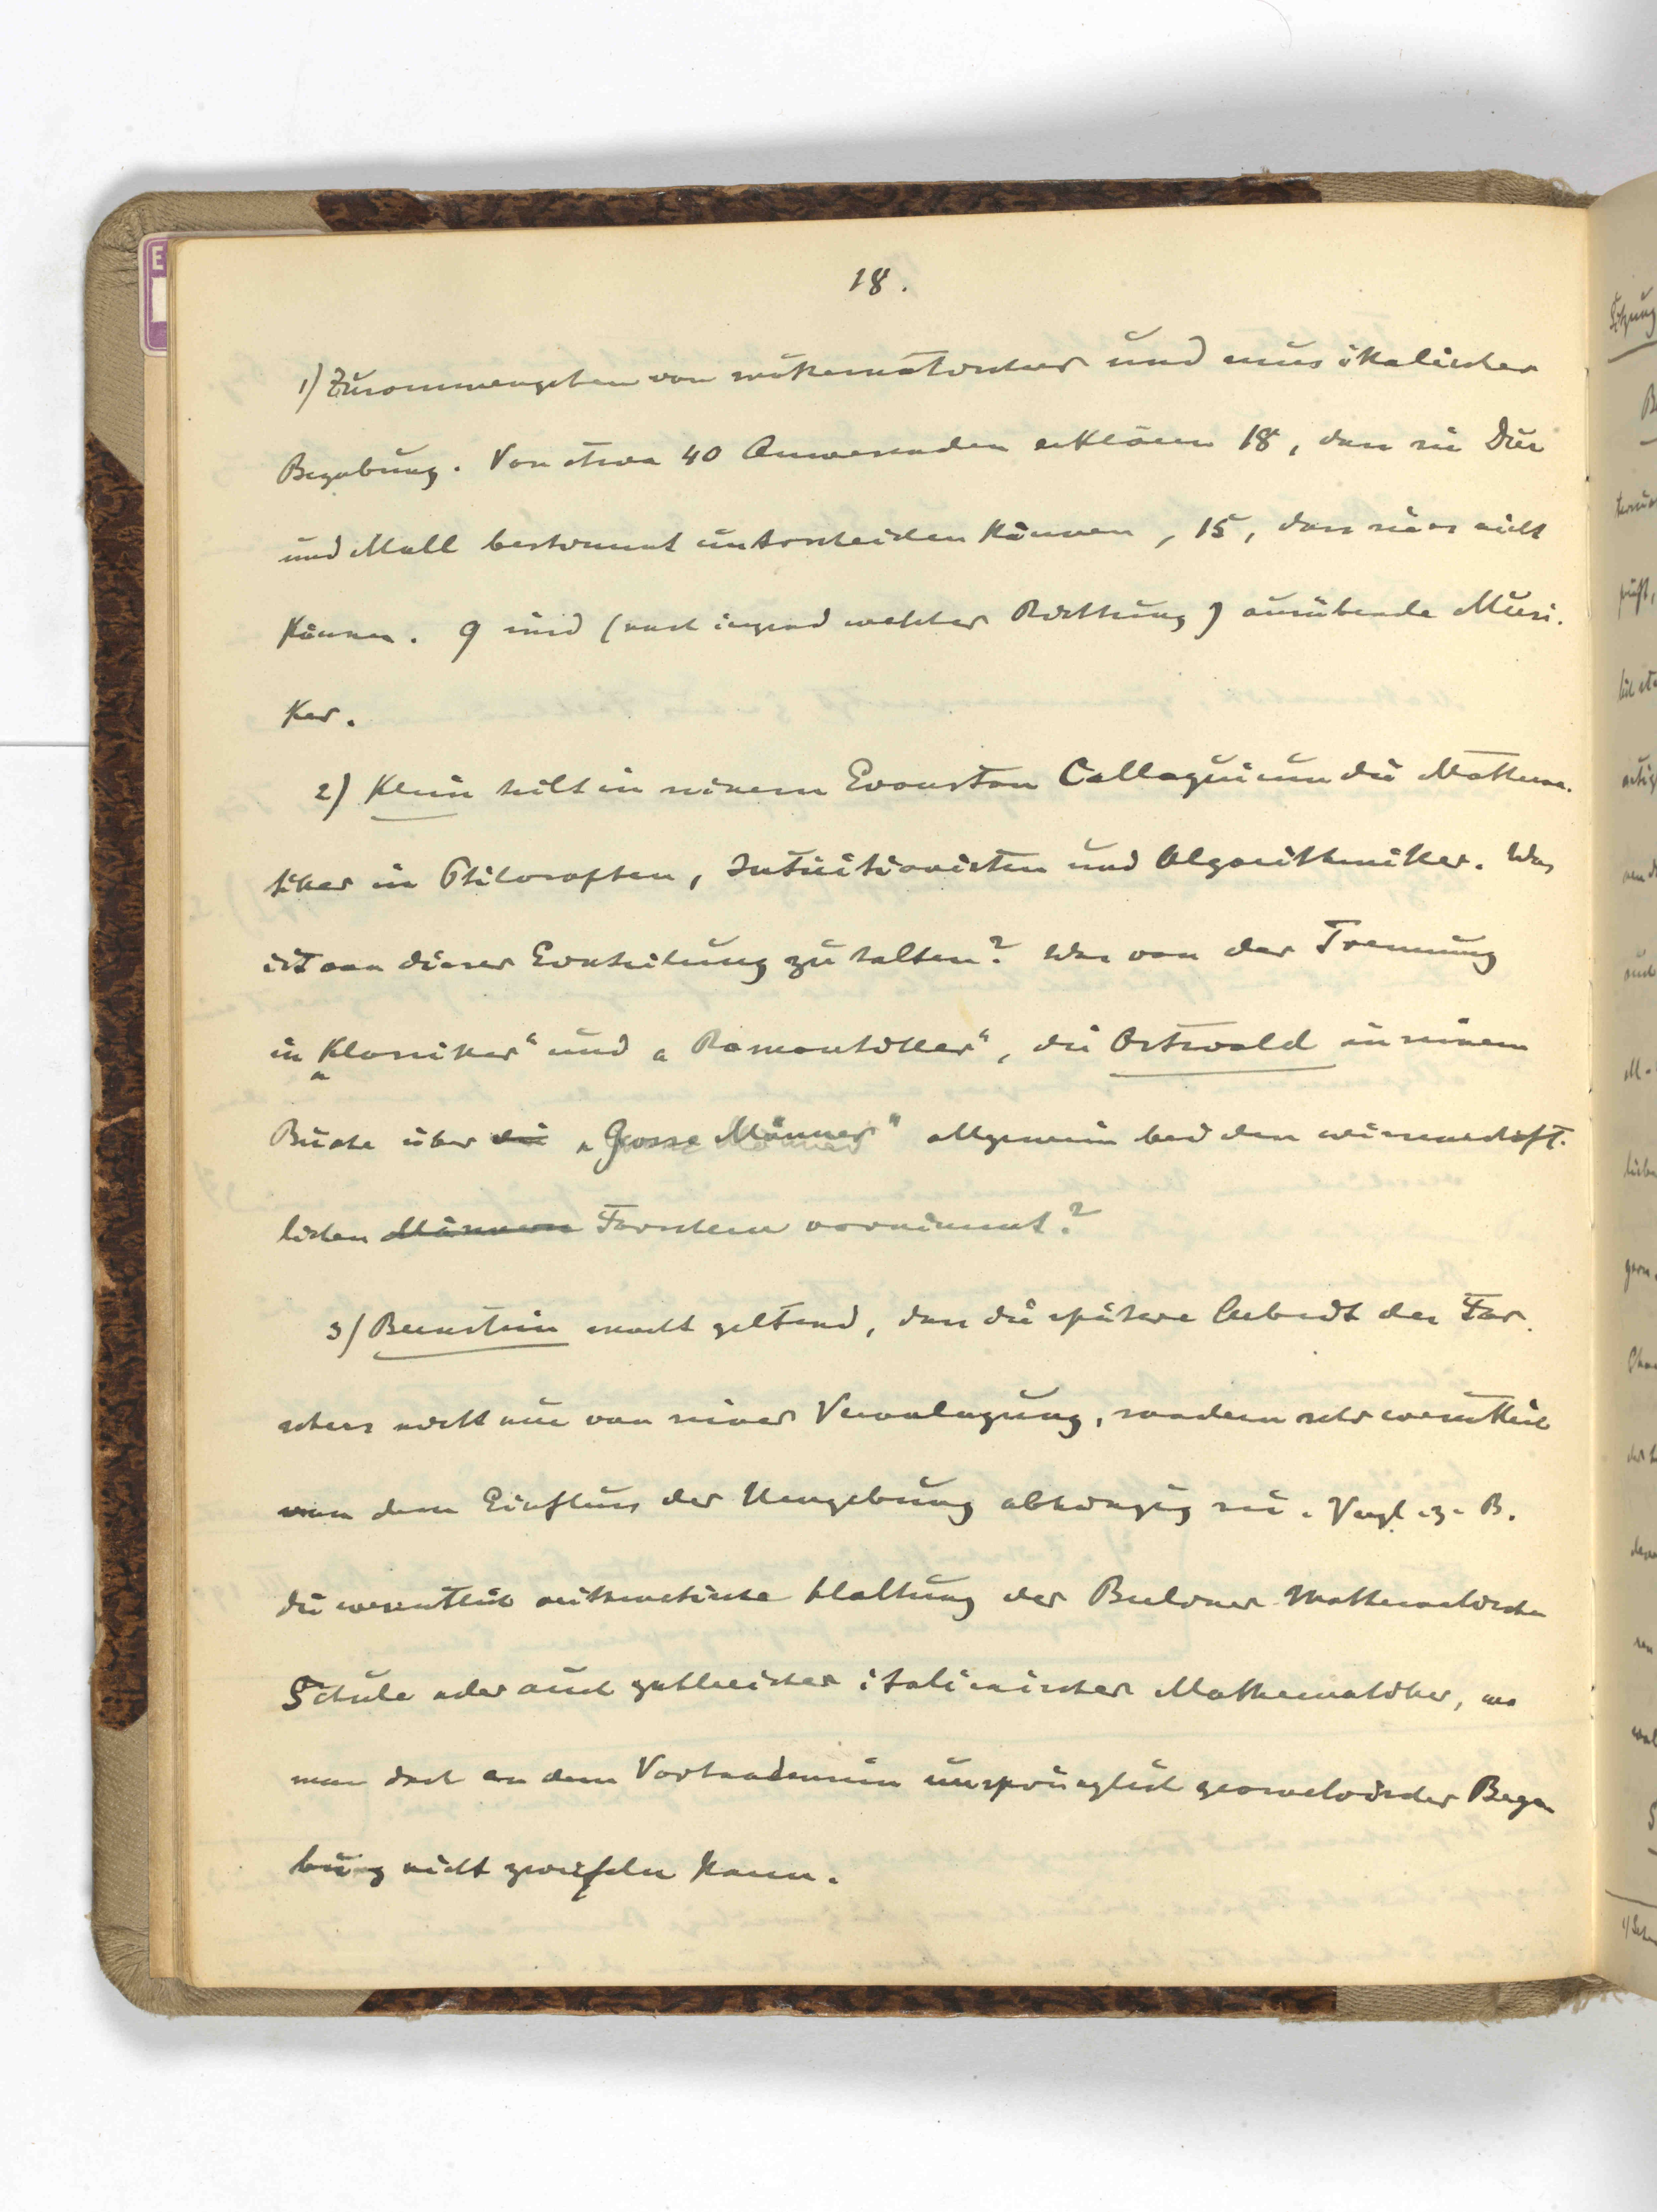 18.
1) Zusammengehen von mathematischer und musikalischer
Begabung. Von etwa 40 Anwesenden erklären 18, dass sie Dur
und Moll bestimmt unterscheiden können, 15, dass sie es nicht
können. 9 sind (nach irgend welcher Richtung) ausübende Musi-
ker.
2) Klein teilt in seinem Evanston Colloquium die Mathema-
tiker in Philosophen, Intuitionisten und Algorithmiker. Was
ist von dieser Einteilung zu halten? Was von der Trennung
in „Klassiker“ und „Romantiker“, die Ostwald in seinem
Buche über die „Grosse Männer“ allgemein bei den wissenschaft-
lichen Männern Forschern vornimmt?
3) Bernstein macht geltend, dass die spätere Arbeit des For-
schers nicht nur von seiner Veranlagung, sondern sehr wesentlich
von dem Einfluss der Umgebung abhängig sei. Vergl. z. B.
die wesentlich arithmetische Haltung der Berliner Mathematischen
Schule oder auch zahlreicher italienischer Mathematiker, wo
man doch an dem Vorhandensein ursprünglich geometrischer Bega
bung nicht zweifeln kann.